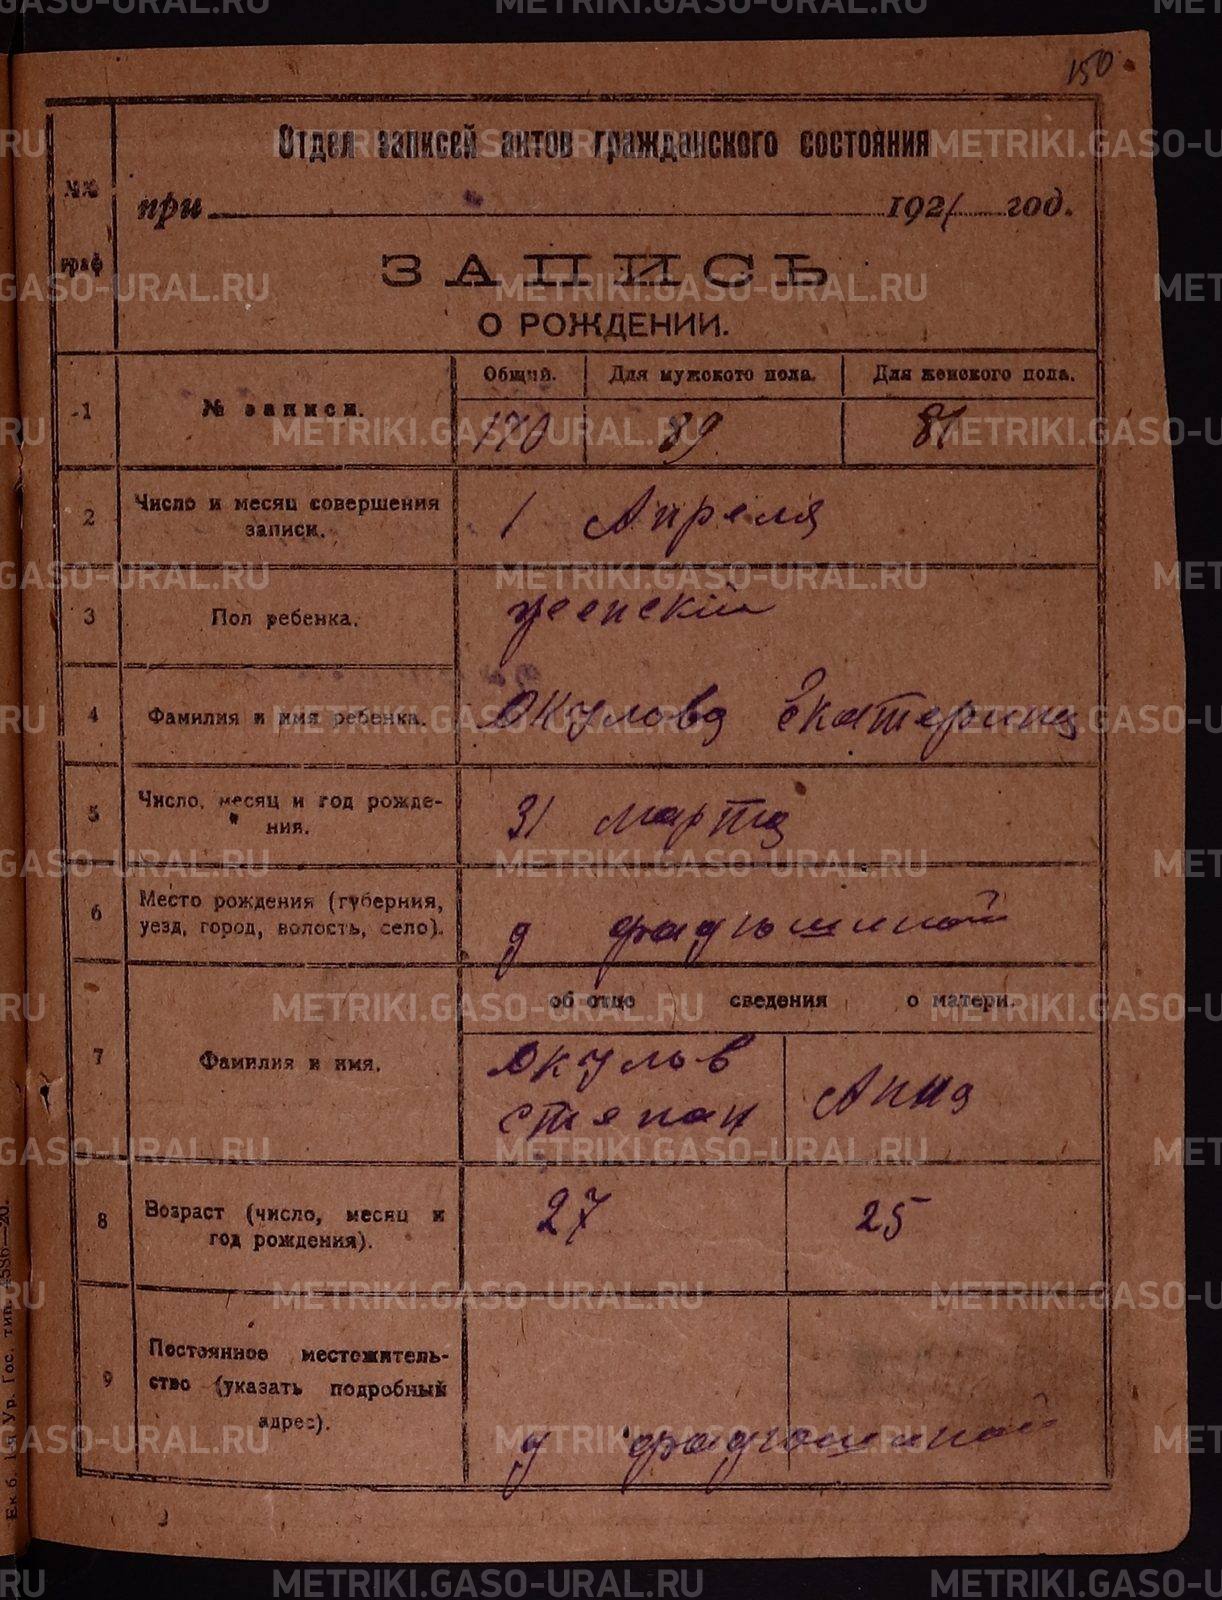 150
Отдел записей актов гражданского состояния
№№ граф
при 1921 год.
ЗАПИСЬ
О РОЖДЕНИИ.
1 № записи. Общий. Для мужского пола. Для женского пола.
170 89 81
2 Число и месяц совершения записи. 1 Апреля
3 Пол ребенка. женский
4 Фамилия и имя ребенка. Окулова Екатерина
5 Число, месяц и год рождения. 31 марта
6 Место рождения (губерния, уезд, город, волость, село). д фадюшиной
об отце сведения о матери.
7 Фамилия и имя. Окулов Степан Анна
8 Возраст (число, месяц и год рождения). 27 25
9 Постоянное местожительство (указать подробный адрес). д фадюшиной
METRIKI.GASO-URAL.RU